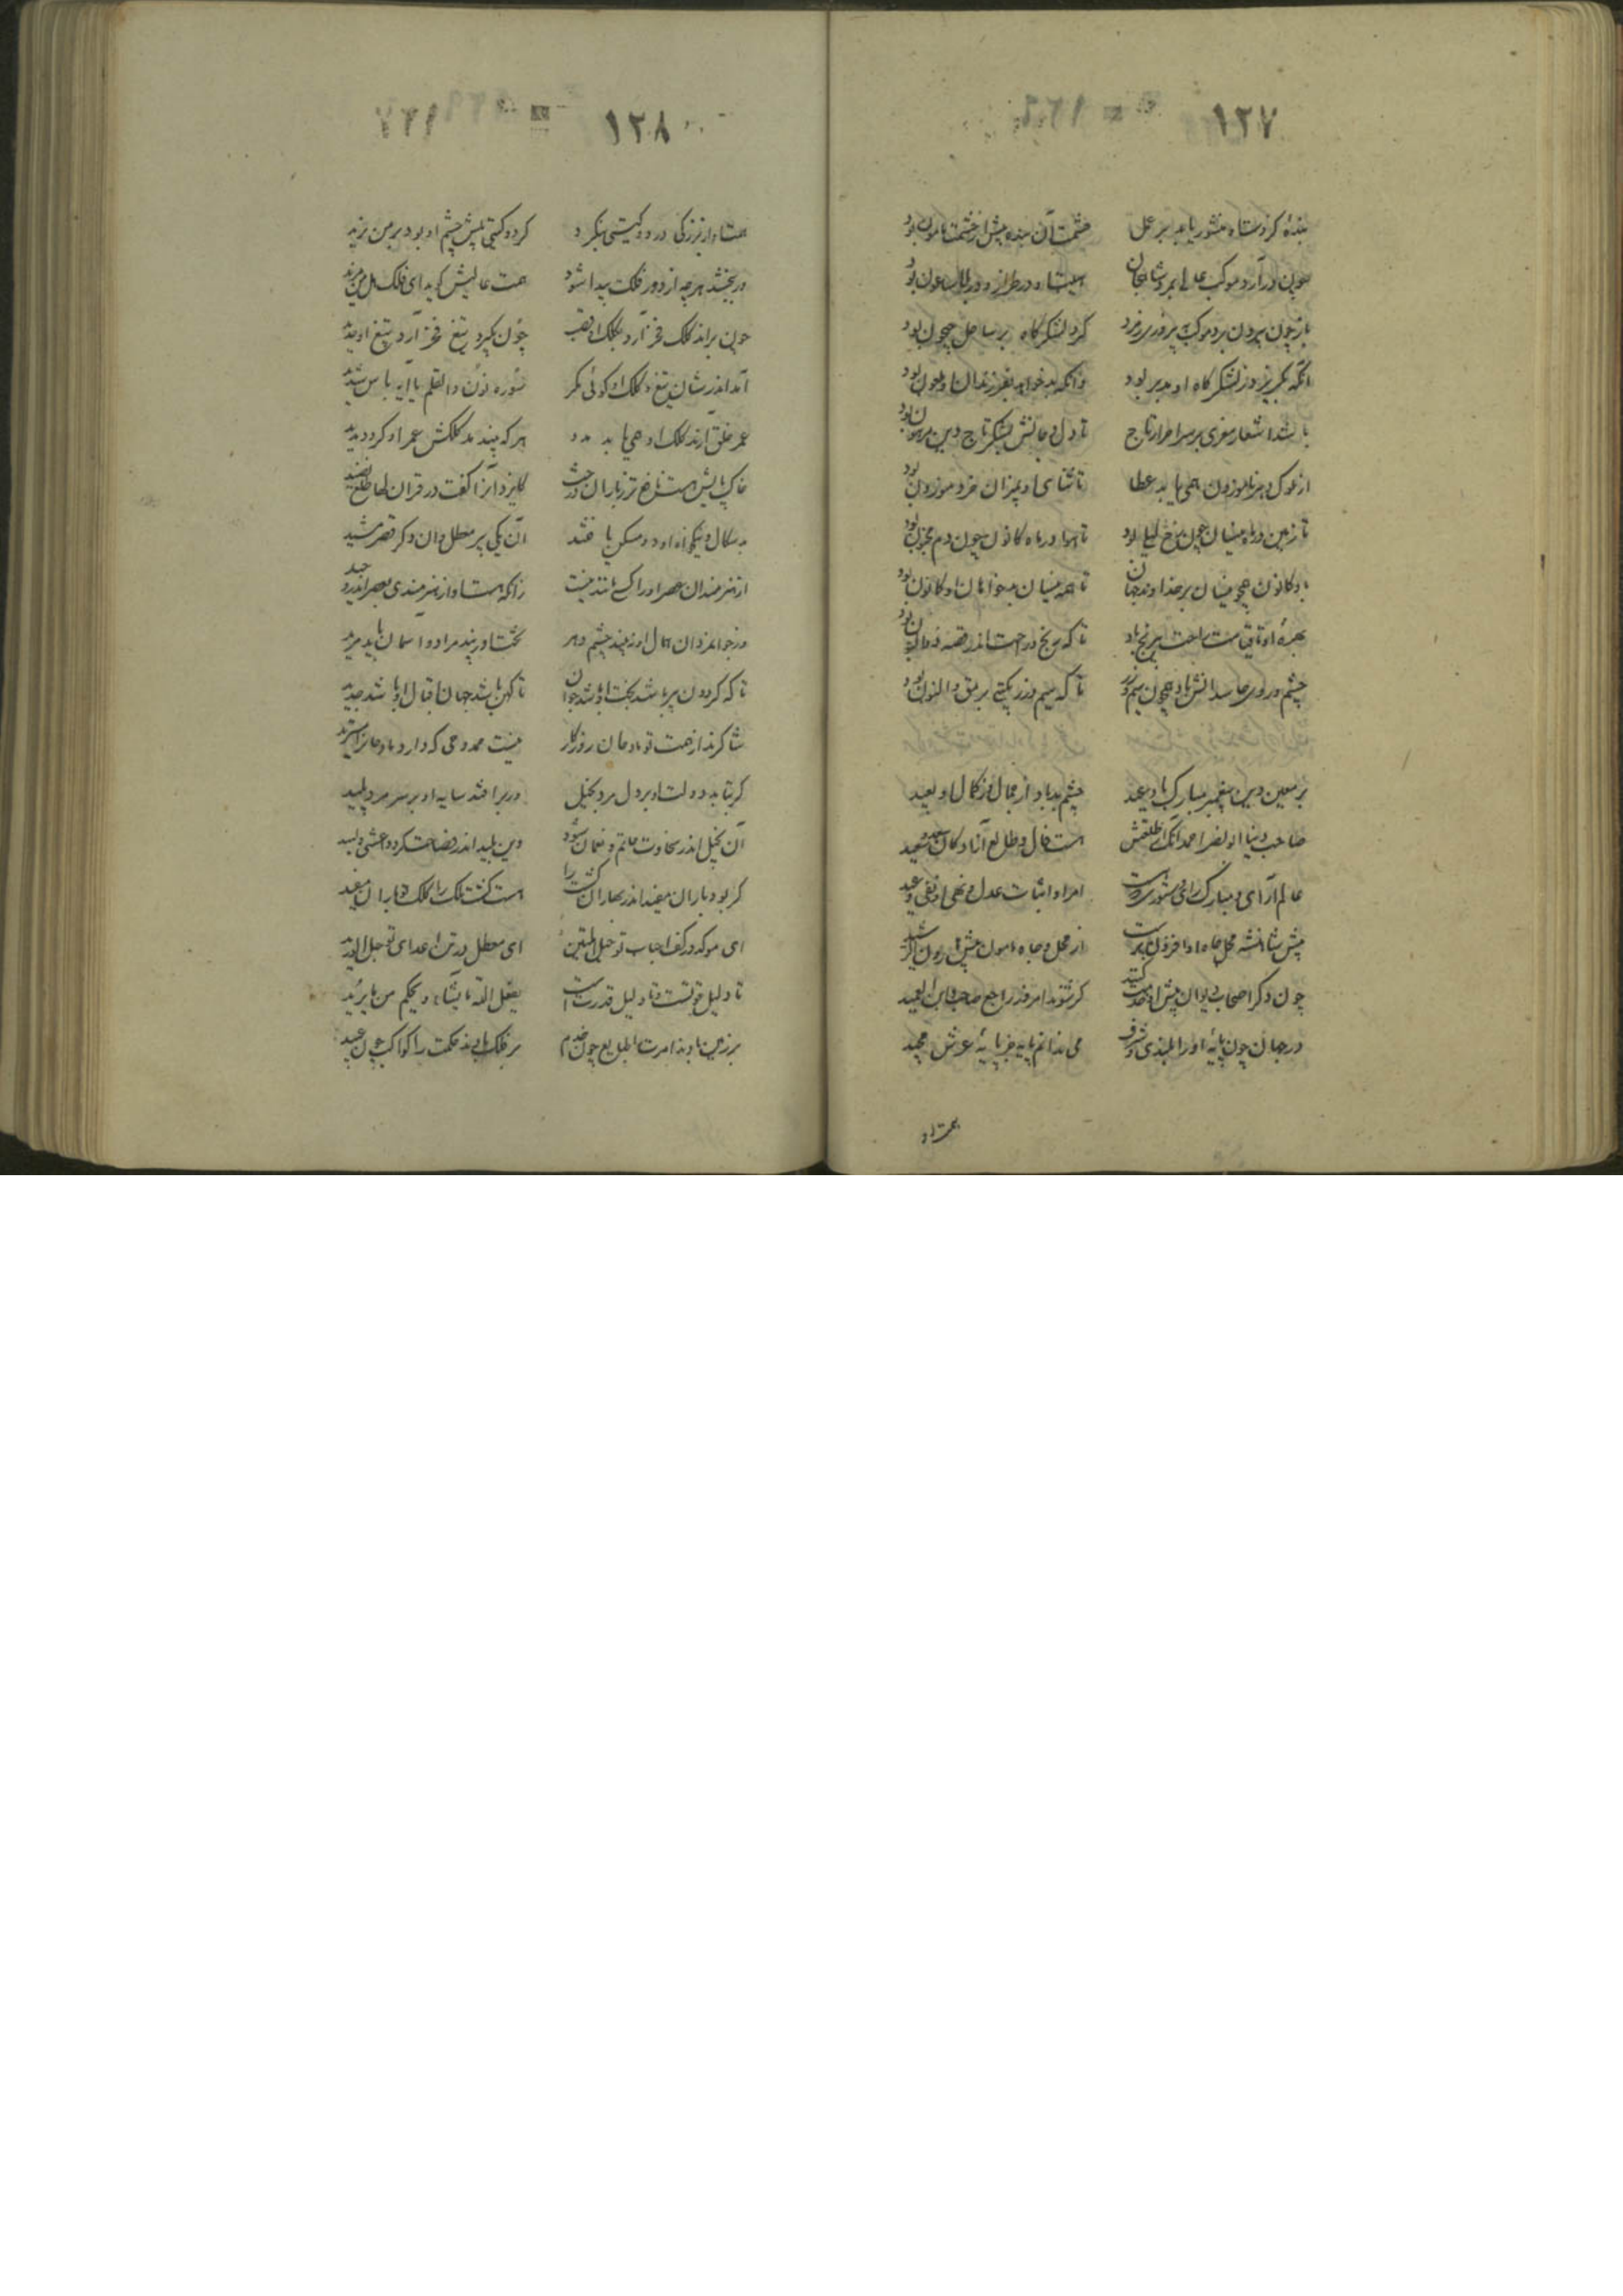 ۱۲۷
بندهٔ کز وستاه منشور یابد بر عمل حشمت آن بنده بیش از حشمت مامون بود
چون در آرد موکب عالی بمرو شاهجان
باز چون بیرون برد موکب کرد لشکر گاه بر ساحل جیحون بود
آنکه بگریزد ز لشکر گاه او مدبر بود وآنکه بدخواهد بفرزندان او ملعون بود
باشد اشعار معزی بر سر احرار تاج تا دل و جانش بشکر تاج دین مرهون بود
از ملوک دهر ناموزون همی یابد عطا تا ثنای او بمیزان خرد موزون بود
تا زمین در ماه نیسان چون رخ لیلی بود تا هوا در ماه کانون چون دم مجنون بود
باد کانون همچو نیسان بر خداوند جهان تا همه نیسان بدخواهان او کانون بود
بهرهٔ او تا قیامت راحت بی رنج باد تا که رنج و راحت اندر قصه ذوالنون بود
چشم و روی حاسدانش باد چون سیم و زر تا که سیم و زر بگیتی
بر معین دین پیغمبر مبارک باد عید چشم بد باد از جمال و از کمال او بعید
صاحب دنیا ابونصر احمد آنک از طلعتش هست فال و طالع آزادگان سعد و سعید
عالم آرای و مبارک رای دستوری که هست امر او اثبات عدل و نهی او نفی وعید
پیش شاهنشه محل و جاه او افزونتر است از محل و جاه مامون پیش هارون الرشید
چون دگر اصحاب دیوان پیش او خدمت کنند گر شوند امروز راجع صاحب و ابن العمید
در جهان چون پایهٔ او را بلندی و شرف می ندانم پایه جز پایهٔ عرش مجید
۱۲۸
همت او از بزرگی در دو گیتی ننگرد گر دو گیتی پیش چشم او بود بر من یزید
ور ببخشد هرچه از دور فلک پیدا شود همت عالیش گوید ای فلک هل من مزید
چون براند کلک فخر آرد بکلک او قلم چون بگیرد تیغ فخر آرد بتیغ او
آمد اندر شان تیغ و کلک او گوئی مگر سوره نون والقلم یا آیه باس شدید
عمر خلق از مد کلک او همی یابد مدد هر که بیند مد کلکش عمر او گردد مدید
خاک پایش هست شاخ تر ز باران درخت کایزد آنرا گفت در قران لها طلع نضید
بدسگال و نیکخواه او دو مسکن یافتند آن یکی بئر معطل وان دگر قصر مشید
از هنرمندان عصر او را کسی مانند نیست زآنکه هست او از هنرمندی بعصر اندر وحید
وز جوانمردان همال او نبیند چشم دهر
تا که گردون پیر باشد بخت او باشد جوان تا کهن باشد جهان اقبال او باشد جدید
شاکرند از همت تو مادحان روزگار نیست ممدوحی که دارد مادحان زین
گر بتابد دولت او بر دل مرد بخیل ور بر افتد سایه او بر سر مرد پلید
آن بخیل اندر سخاوت حاتم و نعمان شود وین بلید اندر فصاحت گردد اعشی و لبید
گر بود باران مفید اندر بهاران کشت را هست کشت ملک را کلک تو باران مفید
ای موکد در کف احباب تو حبل المتین ای معطل در تن اعدای تو حبل الورید
تا دلیل قوتست و تا دلیل قدرت است یفعل الله ما یشاء و یحکم من ما یرید
بر زمین بادند امرت را طبایع چون خدم بر فلک بادند حکمت را کواکب چون عبید